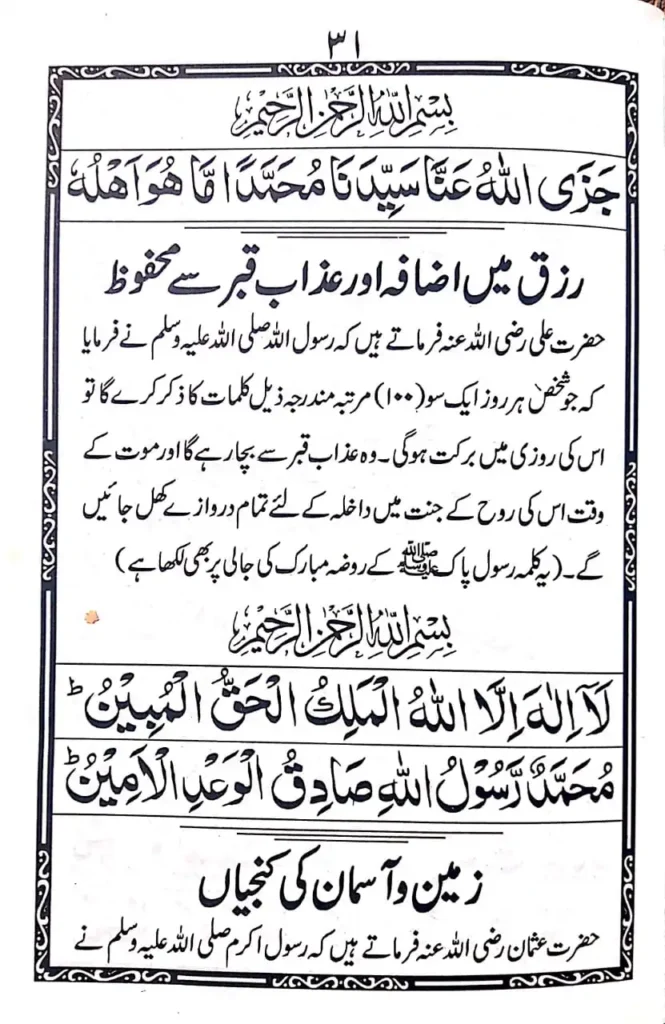 ۳۱
بِسْمِ اللّٰهِ الرَّحْمٰنِ الرَّحِيْمِ
جَزَى اللّٰهُ عَنَّا سَيِّدَنَا مُحَمَّدًا مَّا هُوَ اَهْلُهٗ
رزق میں اضافہ اور عذاب قبر سے محفوظ
حضرت علی رضی اللہ عنہ فرماتے ہیں کہ رسول اللہ صلی اللہ علیہ وسلم نے فرمایا
کہ جو شخص ہر روز ایک سو (۱۰۰) مرتبہ مندرجہ ذیل کلمات کا ذکر کرے گا تو
اس کی روزی میں برکت ہوگی۔ وہ عذاب قبر سے بچا رہے گا اور موت کے
وقت اس کی روح کے جنت میں داخلہ کے لئے تمام دروازے کھل جائیں
گے۔ (یہ کلمہ رسول پاک ﷺ کے روضہ مبارک کی جالی پر بھی لکھا ہے)
بِسْمِ اللّٰهِ الرَّحْمٰنِ الرَّحِيْمِ
لَآ اِلٰهَ اِلَّا اللّٰهُ الْمَلِكُ الْحَقُّ الْمُبِيْنُ ؕ
مُحَمَّدٌ رَّسُوْلُ اللّٰهِ صَادِقُ الْوَعْدِ الْاَمِيْنُ ؕ
زمین و آسمان کی کنجیاں
حضرت عثمان رضی اللہ عنہ فرماتے ہیں کہ رسول اکرم صلی اللہ علیہ وسلم نے